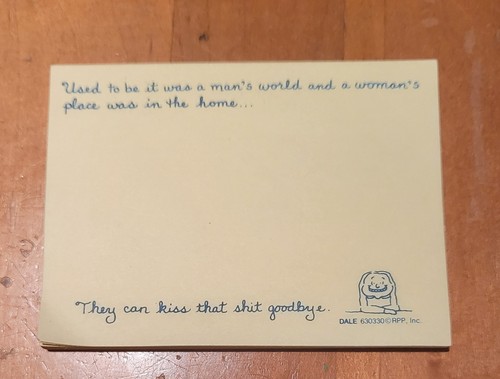 Used to be it was a man's world and a woman's
place was in the home...
They can kiss that shit goodbye.
DALE 630330©RPP, Inc.